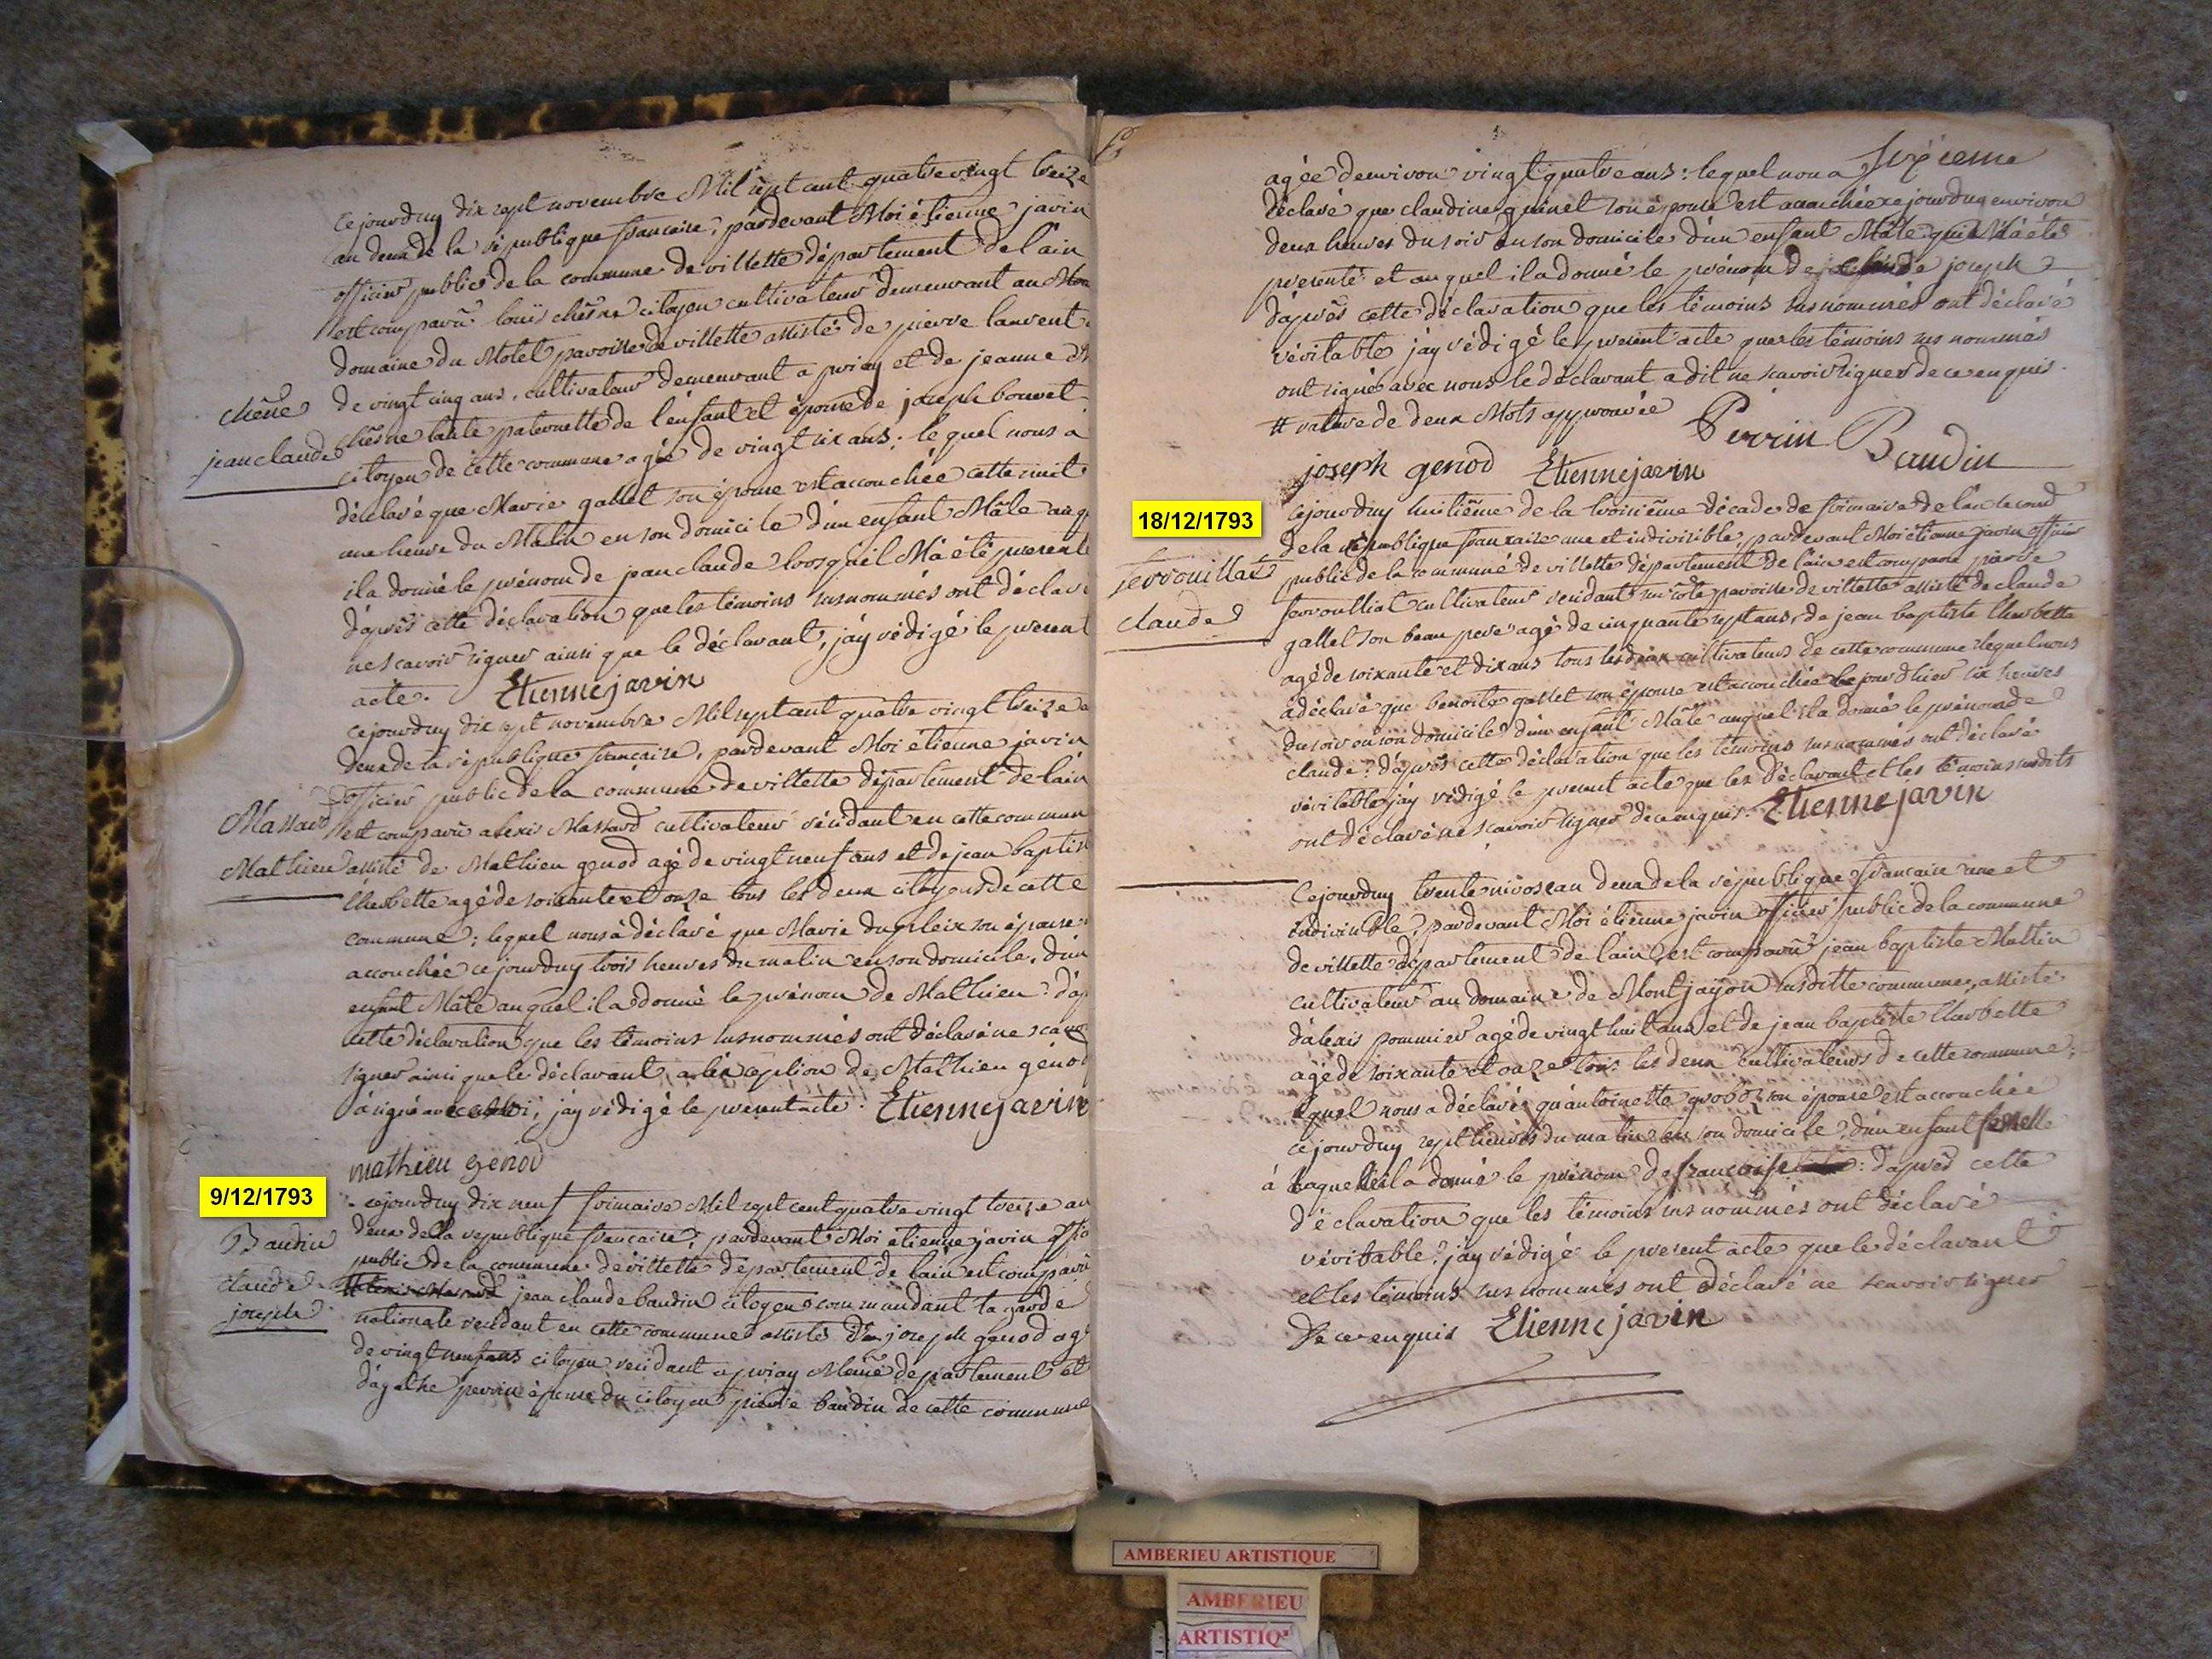 cejourduy dix sept novembre Mil sept cent quatre vingt treize
an deux de la république francaise, pardevant Moi étienne javin
officier public de la commune de villette département de l'ain
est comparu louis chêsne citoyen cultivateur demeurant au
domaine du Molet paroisse de villette assisté de pierre laurent
de vingt cinq ans, cultivateur demeurant a priay et de jeanne
chêsne
jean claude
chêsne tante paternelle de l'enfant et épouse de joseph bouvet
citoyen de cette commune agé de vingt six ans: lequel nous a
déclaré que Marie gallet son épouse est accouchée cette nuit
une heure du Matin en son domicile d'un enfant Mâle
il a donné le prénom de jean claude lorsqu'il M'a été presenté
d'après cette déclaration que les témoins susnommés ont déclaré
ne scavoir signer ainsi que le déclarant, j'ay rédigé le present
acte. Etienne javin
cejourduy dix sept novembre Mil sept cent quatre vingt treize
deux de la république francaise, pardevant Moi étienne javin
officier public de la commune de villette département de l'ain
Massard
Mathieu
est comparu alexis Massard cultivateur résidant en cette commune
assisté de Mathieu genod agé de vingt neuf ans et de jean baptiste
Charbette agé de soixante et onze tous les deux citoyens de cette
commune; lequel nous à déclaré que Marie dupleix son épouse
accouchée cejourduy trois heures du matin en son domicile, d'un
enfant Mâle auquel il a donné le prénom de Mathieu: d'ap
cette déclaration que les témoins susnommés ont déclaré ne scavoir
signer ainsi que le déclarant a l'éxception de Mathieu génod
à signé avec Moi, j'ay rédigé le present acte. Etienne javin
mathieu genod
9/12/1793
cejourduy dix neuf frimaire Mil sept cent quatre vingt treize an
deux de la republique francaise, pardevant Moi étienne javin
Baudin
claude
joseph
public de la commune de villette département de l'ain est comparu
jean claude baudin citoyen commandant la garde
nationale residant en cette commune assisté de joseph genod agé
de vingt neuf ans citoyen residant a priay Même departement et
d'agathe perrin épouse du citoyen pierre baudin de cette commune
Sixieme
agée d'environ vingt quatre ans: lequel nous a
déclaré que claudine guinet son épouse est accouchée cejourduy environ
deux heures du soir en son domicile d'un enfant Mâle qui M'a été
presenté et auquel il a donné le prénom de claude joseph
d'après cette déclaration que les témoins susnommés ont déclaré
véritable j'ay rédigé le present acte que les témoins susnommés
ont signé avec nous le déclarant a dit ne scavoir signer de ce enquis
rature de deux Mots approuvée Perrin Baudin
joseph genod Etienne javin
18/12/1793
cejourduy huitième de la troisième décade de frimaire de l'an second
de la république francaise une et indivisible pardevant Moi étienne javin officier
ferrouillat
claude
public de la commune de villette département de l'ain est comparu pierre
ferroulliat cultivateur residant sur côte paroisse de villette assisté de claude
gallet son beau pere agé de cinquante sept ans, de jean baptiste Charbette
agé de soixante et dix ans tous les deux cultivateurs de cette commune lequel nous
a déclaré que benoite gallet son épouse est accouchée le jour d'hier six heures
du soir en son domicile d'un enfant Mâle auquel il a donné le prénom de
claude: d'après cette déclaration que les témoins susnommés ont déclaré
véritable j'ay rédigé le present acte que les déclarant et les témoins susdits
ont déclaré ne scavoir signer de ce enquis. Etienne javin
Cejourduy trente nivose an deux de la république francaise une et
indivisible, pardevant Moi étienne javin officier public de la commune
de villette département de l'ain, est comparu jean baptiste Mattin
cultivateur au domaine de Montjayon susditte commune, assisté
d'alexis pommier agé de vingt huit ans et de jean baptiste Charbette
agé de soixante et onze tous les deux cultivateurs de cette commune;
lequel nous a déclaré qu'antoinette son épouse est accouchée
cejourduy sept heures du matin en son domicile, d'un enfant femelle
à laquelle il a donné le prénom de francoise: d'après cette
déclaration que les témoins susnommés ont déclaré
véritable: j'ay rédigé le present acte que le déclarant
et les témoins susnommés ont déclaré ne scavoir signer
de ce enquis Etienne javin
AMBERIEU ARTISTIQUE
AMBERIEU
ARTISTIQ